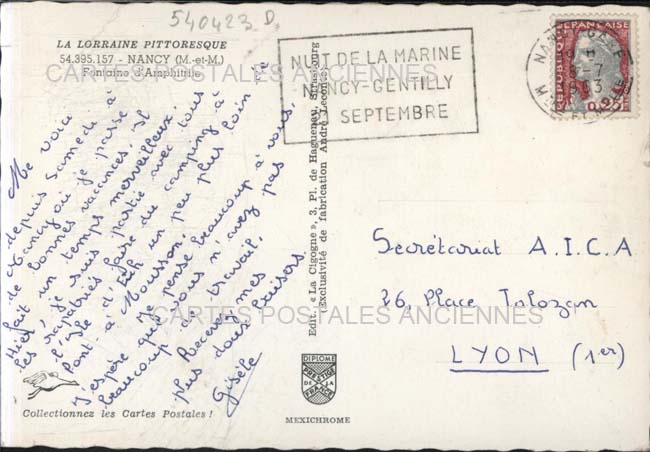 540423 D
LA LORRAINE PITTORESQUE
54.395.157 - NANCY (M.-et-M.)
Fontaine d'Amphitrite
CARTES POSTALES ANCIENNES
Me voici
depuis Samedi à
Nancy où je passe
de bonnes vacances. Il
fait un temps merveilleux.
Hier je suis partie avec tous
les faire du camping à
l'Isle d' un peu plus loin de
Pont à Mousson.
J'espère que vous n'avez pas
beaucoup de travail.
Je pense beaucoup à vous.
Recevez mes
plus doux baisers.
Gisèle
Collectionnez les Cartes Postales !
NUIT DE LA MARINE
NANCY-GENTILLY
SEPTEMBRE
NANCY GARE
1963
REPUBLIQUE FRANÇAISE
0,25
Edit. « La Cigogne », 3, Pl. de Haguenau, Strasbourg
(Exclusivité de fabrication André Leconte)
Secrétariat A.I.C.A
26, Place Tolozan
LYON (1er)
CARTES POSTALES ANCIENNES
DIPLOME
PRESTIGE
DE LA
FRANCE
MEXICHROME